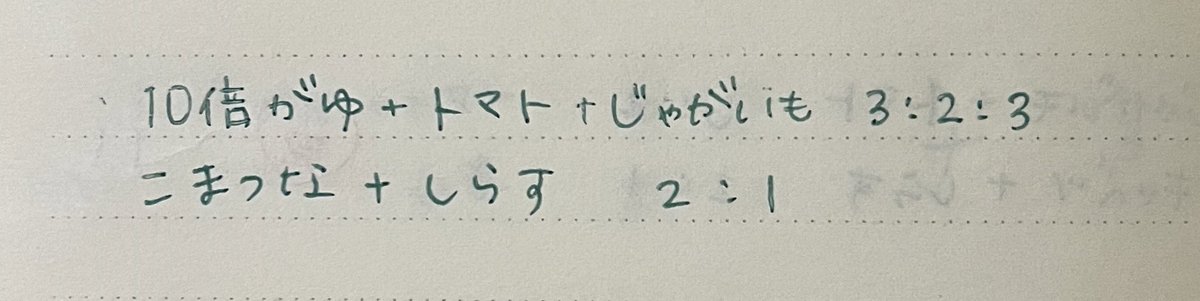 10倍がゆ+トマト+じゃがいも 3:2:3
こまつな+しらす 2:1